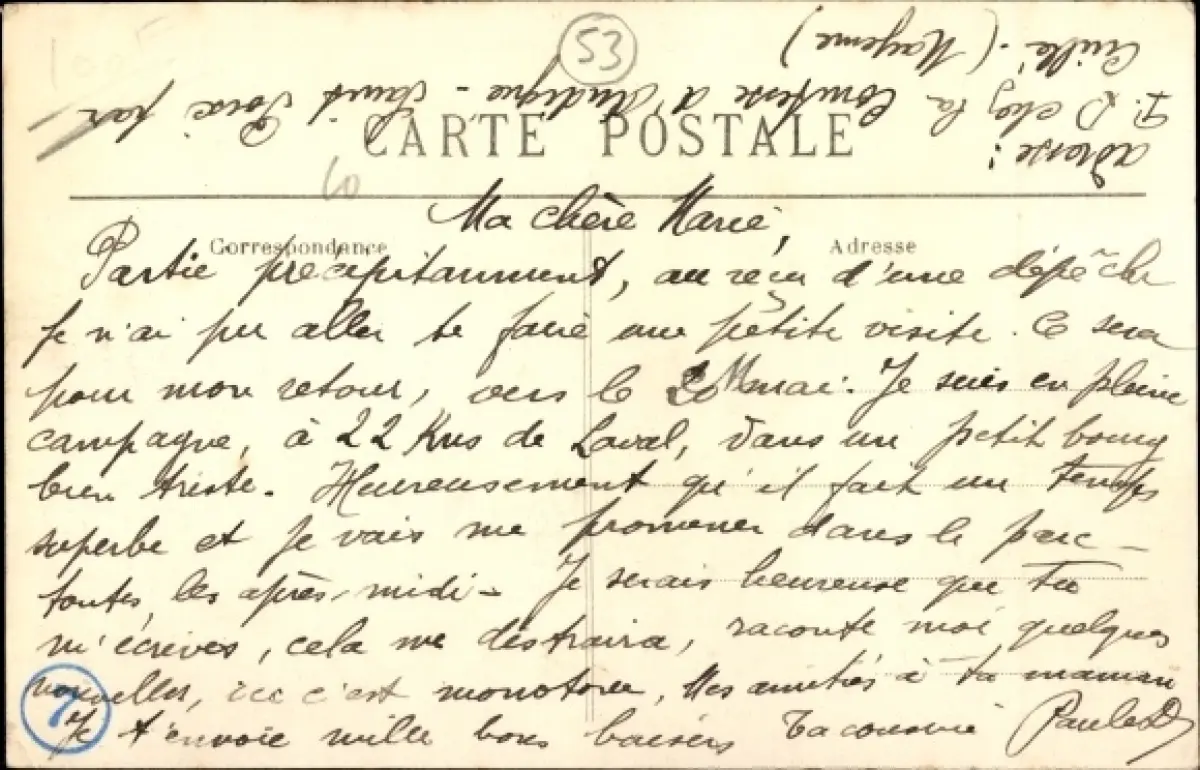 53
adresse :
P. D chez la Comtesse d'Andigné - Saint Poix par
Cuillé - (Mayenne)
CARTE POSTALE
60
Ma chère Marie,
Correspondance
Adresse
Partie précipitamment, au reçu d'une dépêche
je n'ai pu aller te faire une petite visite. Ce sera
pour mon retour, vers le 20 mai. Je suis en pleine
campagne, à 22 Kms de Laval, dans un petit bourg
bien triste. Heureusement qu'il fait un temps
superbe et je vais me promener dans le parc
toutes les après-midi - Je serais heureuse que tu
m'écrives, cela me distraira, raconte moi quelques
nouvelles, ici c'est monotone, Mes amitiés à ta maman
Je t'envoie mille bons baisers Ta cousine Paule D
7